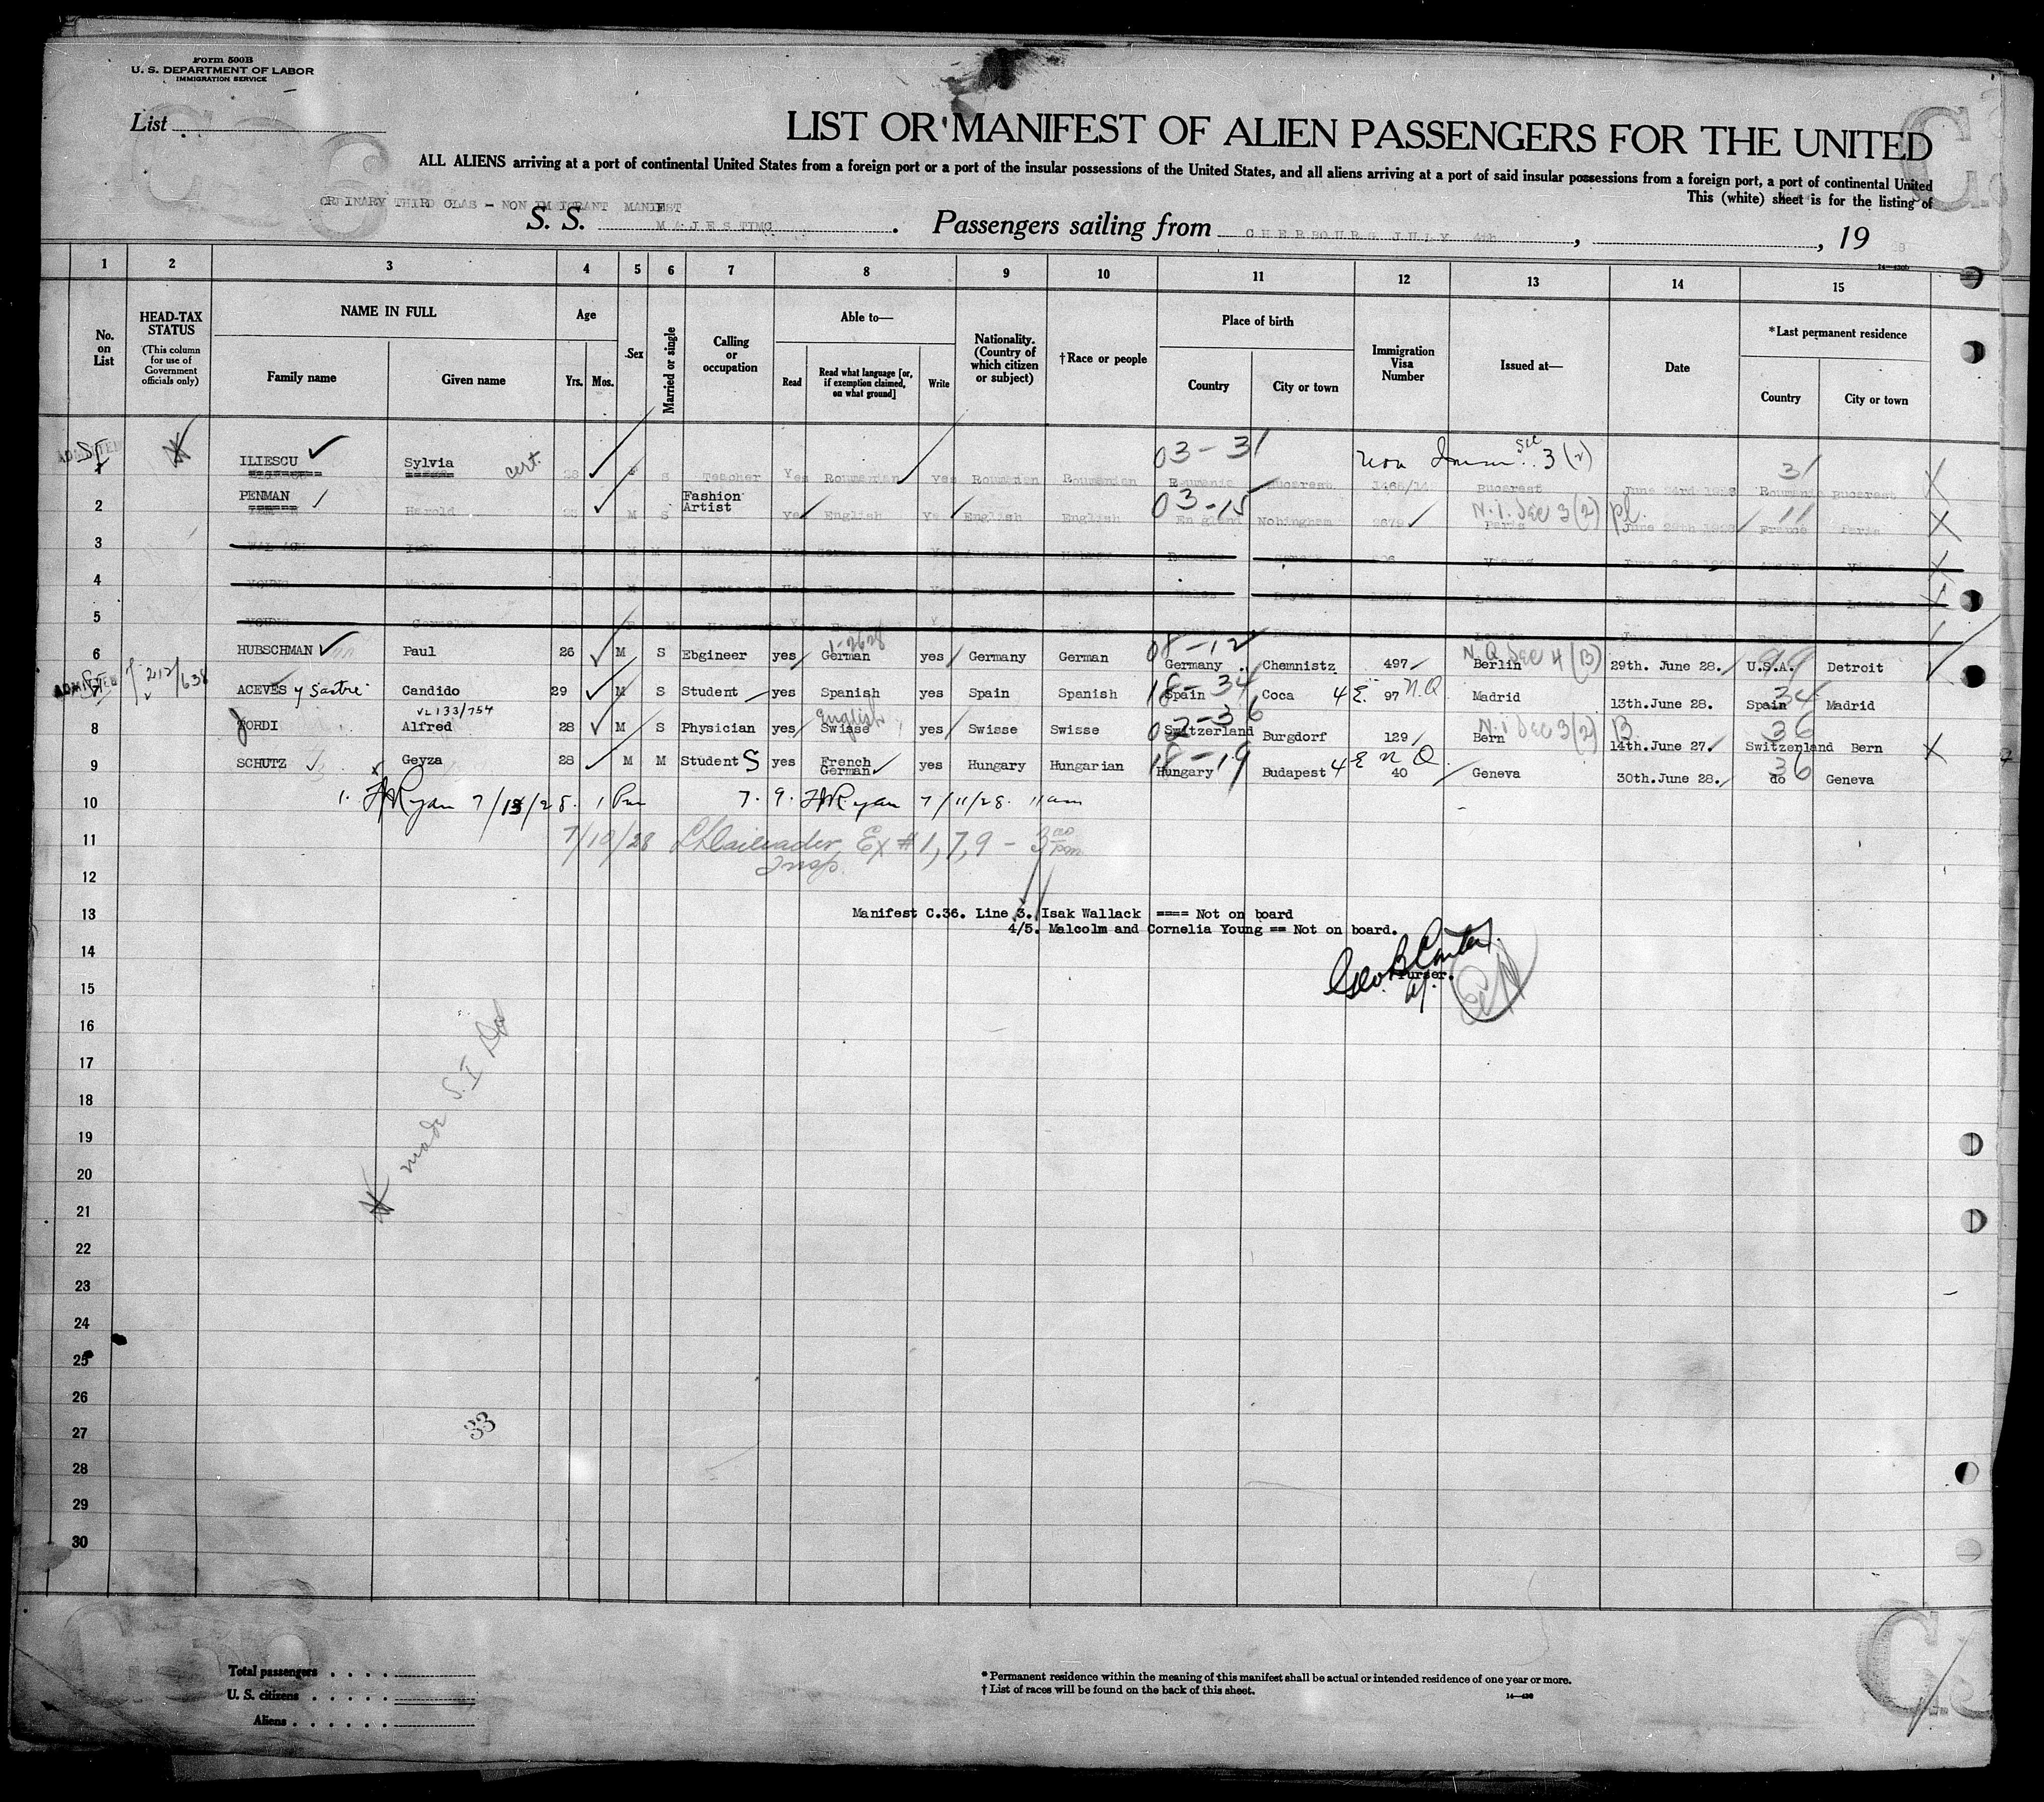 Form 500B
U. S. DEPARTMENT OF LABOR
IMMIGRATION SERVICE
List
LIST OR MANIFEST OF ALIEN PASSENGERS FOR THE UNITED
ALL ALIENS arriving at a port of continental United States from a foreign port or a port of the insular possessions of the United States, and all aliens arriving at a port of said insular possessions from a foreign port, a port of continental United
This (white) sheet is for the listing of
ORDINARY THIRD CLAS - NON IMMIGRANT MANIEST
S. S. MAJESTIMC. Passengers sailing from CHERBOURG JULY 4th, , 19 28
14—430b
1 2 3 4 5 6 7 8 9 10 11 12 13 14 15
No. on List
HEAD-TAX STATUS
(This column for use of Government officials only)
NAME IN FULL
Family name Given name
Age
Yrs. Mos.
Sex
Married or single
Calling or occupation
Able to—
Read Read what language [or, if exemption claimed, on what ground] Write
Nationality. (Country of which citizen or subject)
†Race or people
Place of birth
Country City or town
Immigration Visa Number
Issued at—
Date
*Last permanent residence
Country City or town
03-31 Non Immi. Sec 3(2) 31
ADMITTED SI 1 ILIESCU Sylvia cert. 28 F S Teacher Yes Roumanian yes Roumanian Roumanian Roumania Bucarest 3465/14 Bucarest June 23rd 1928 Roumania Bucarest X
03-15 N.I. Sec 3(2) pl. 11
2 PENMAN Harold 25 M S Fashion Artist Yes English Yes English English England Nohingham 2679 Paris June 29th 1928 France Paris X
3
4 YOUNG Malcom
5 YOUNG
1-2628 08-12 N.Q Sec 4(B) 99
6 HUBSCHMAN Paul 26 M S Ebgineer yes German yes Germany German Germany Chemnistz 497 Berlin 29th. June 28. U.S.A. Detroit
18-34 34
ADMITTED SI 7 212/638 ACEVES y Sastre Candido 29 M S Student yes Spanish yes Spain Spanish Spain Coca 4 E. 97 N.Q Madrid 13th.June 28. Spain Madrid
VL 133/754 English 02-36 N.I Sec 3(2) B 36
8 JORDI Alfred 28 M S Physician yes Swisse yes Swisse Swisse Switzerland Burgdorf 129 Bern 14th.June 27. Switzenland Bern X
18-19 36
9 SCHUTZ Geyza 28 M M Student S yes French German yes Hungary Hungarian Hungary Budapest 4 E N Q 40 Geneva 30th.June 28. do Geneva
10 1. Ryan 7/13/28. 1 Pm 7. 9. Ryan 7/11/28. 11 am
11 7/10/28 Insp. Ex # 1, 7, 9 - 3 00 pm
12
13 Manifest C.36. Line 3. Isak Wallack ==== Not on board
4/5. Malcolm and Cornelia Young == Not on board.
14 Geo B Carter
Purser.
15
16
17
18 made S.I
19
20
21
22
23
24
25
26
27 33
28
29
30
Total passengers
U. S. citizens
Aliens
* Permanent residence within the meaning of this manifest shall be actual or intended residence of one year or more.
† List of races will be found on the back of this sheet.
14—430